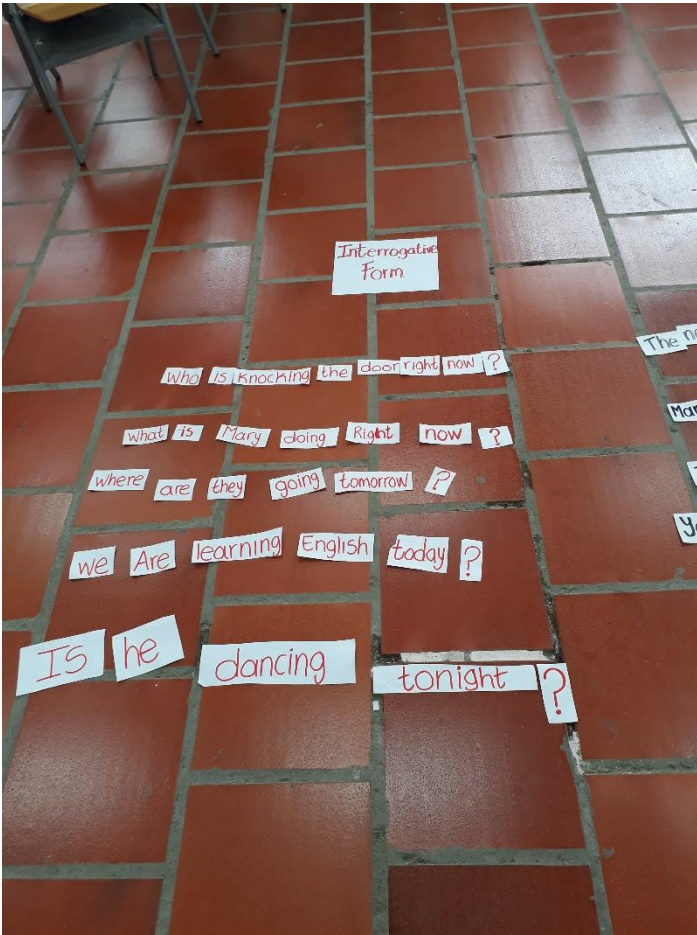 Interrogative
Form
Who is knocking the door right now ?
The
what is Mary doing Right now ?
where are they going tomorrow ?
we Are learning English today ?
Is he dancing tonight ?